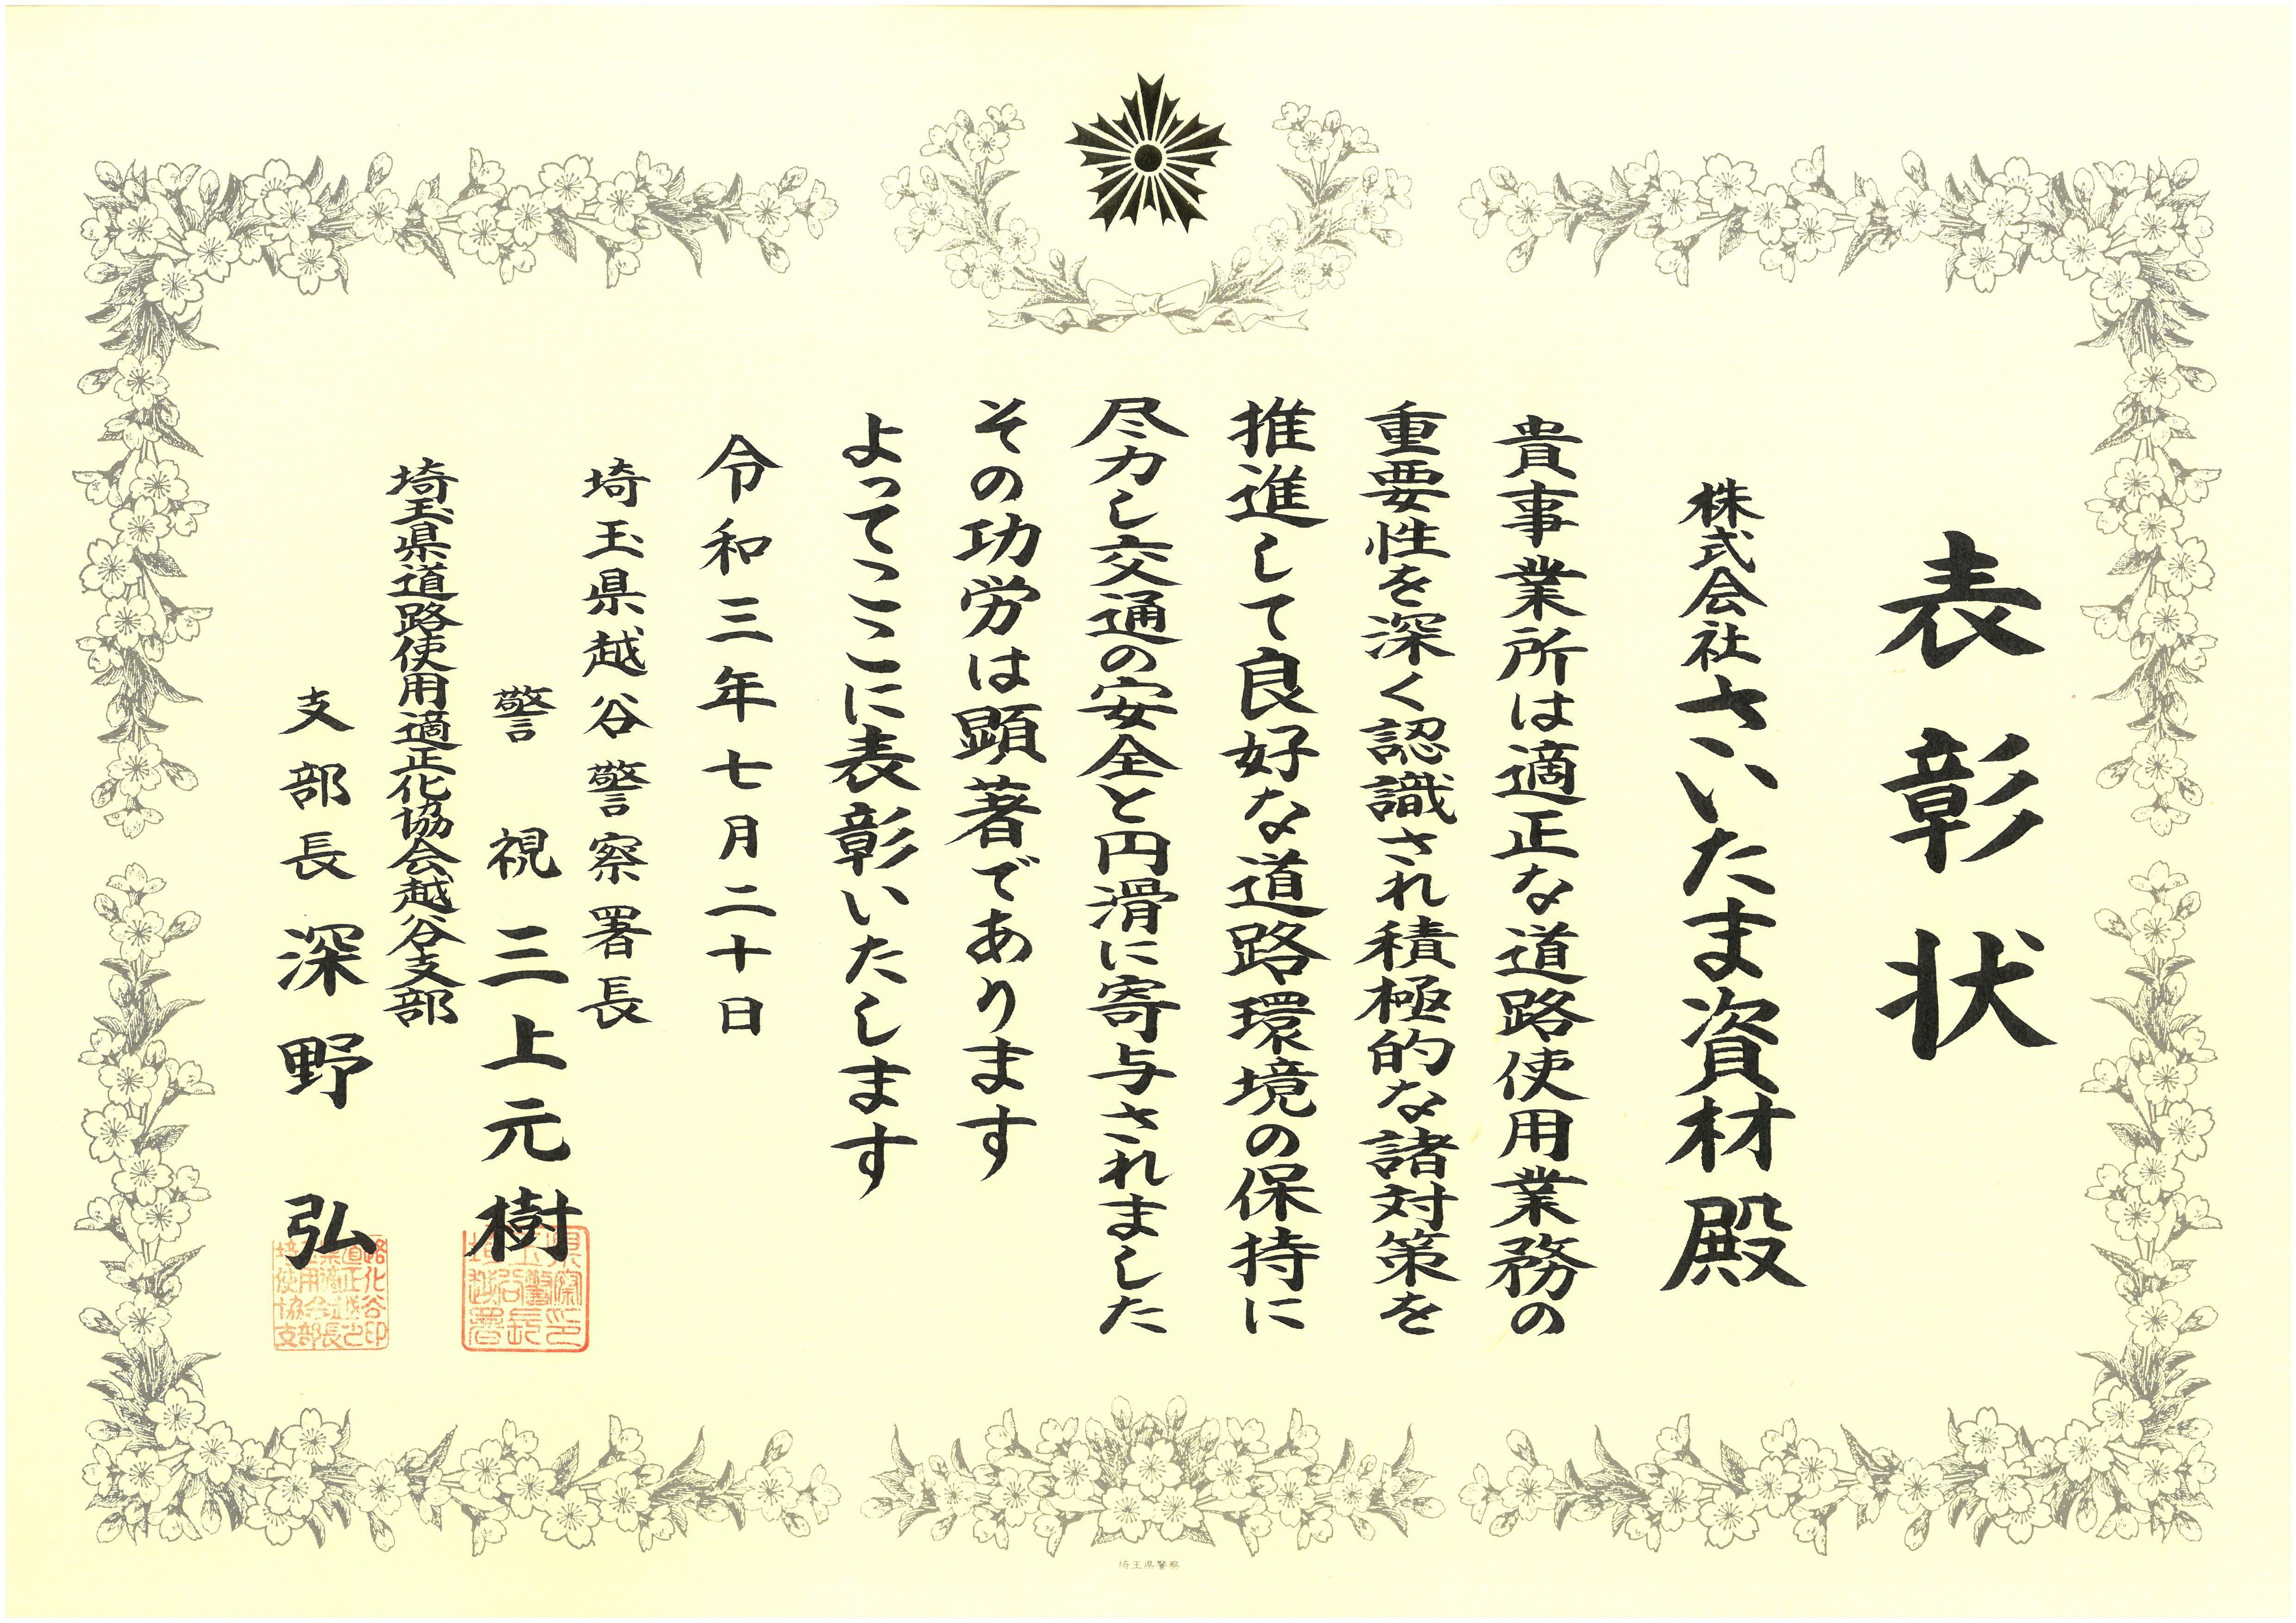 表彰状
株式会社さいたま資材殿
貴事業所は適正な道路使用業務の
重要性を深く認識され積極的な諸対策を
推進して良好な道路環境の保持に
尽力し交通の安全と円滑に寄与されました
その功労は顕著であります
よってここに表彰いたします
令和三年七月二十日
埼玉県越谷警察署長
警視 三上元樹
埼玉県道路使用適正化協会越谷支部
支部長 深野弘
埼玉県警察